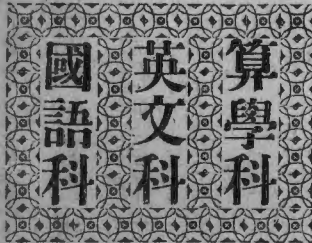 算學科
英文科
國語科